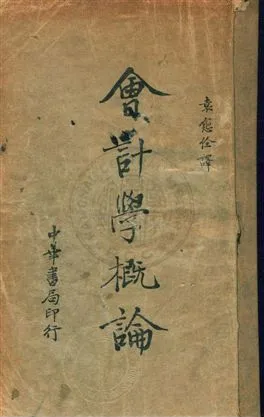 袁愈佺譯
會計學概論
中華書局印行